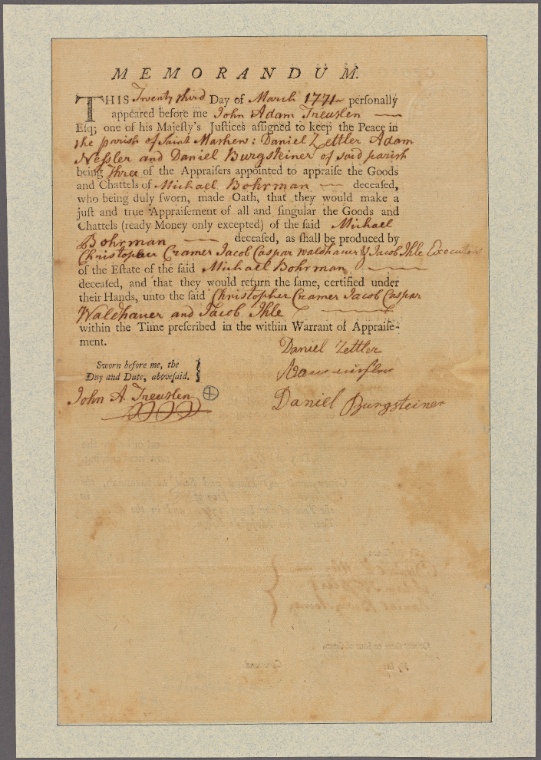 MEMORANDUM.
THIS Twenty third Day of March 1771 personally
appeared before me John Adam Treutlen
Esq; one of his Majesty's Justices assigned to keep the Peace in
the parish of Saint Mathew: Daniel Zettler Adam
Nessler and Daniel Burgsteiner of said parish
being Three of the Appraisers appointed to appraise the Goods
and Chattels of Michael Bohrman deceased,
who being duly sworn, made Oath, that they would make a
just and true Appraisement of all and singular the Goods and
Chattels (ready Money only excepted) of the said Michael
Bohrman deceased, as shall be produced by
Christopher Cramer Jacob Caspar Walchauer & Jacob Ihle Executors
of the Estate of the said Michael Bohrman
deceased, and that they would return the same, certified under
their Hands, unto the said Christopher Cramer Jacob Caspar
Walchauer and Jacob Ihle
within the Time prescribed in the within Warrant of Appraise-
ment.
Daniel Zettler
Sworn before me, the
Day and Date, abovesaid.
John A Treutlen
Daniel Burgsteiner